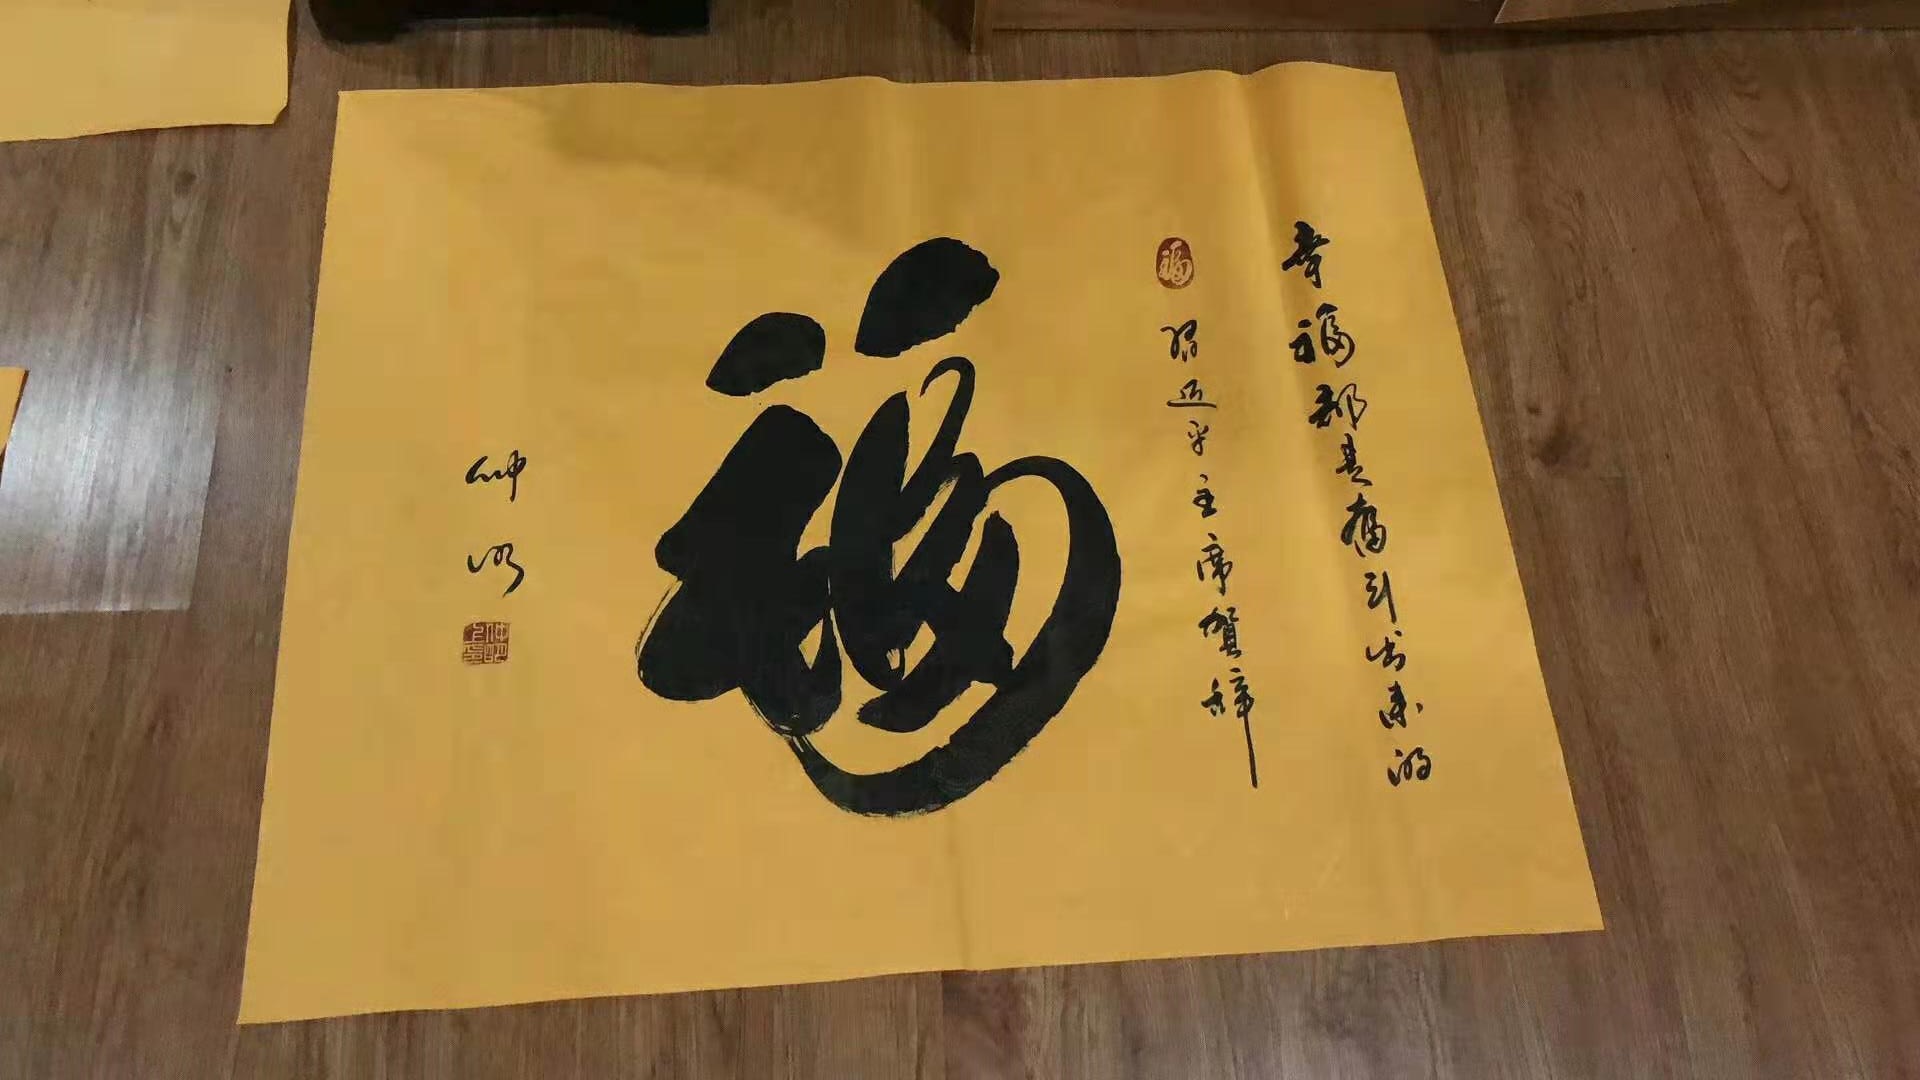 幸福都是奋斗出来的
福
习近平主席贺辞
福
仲